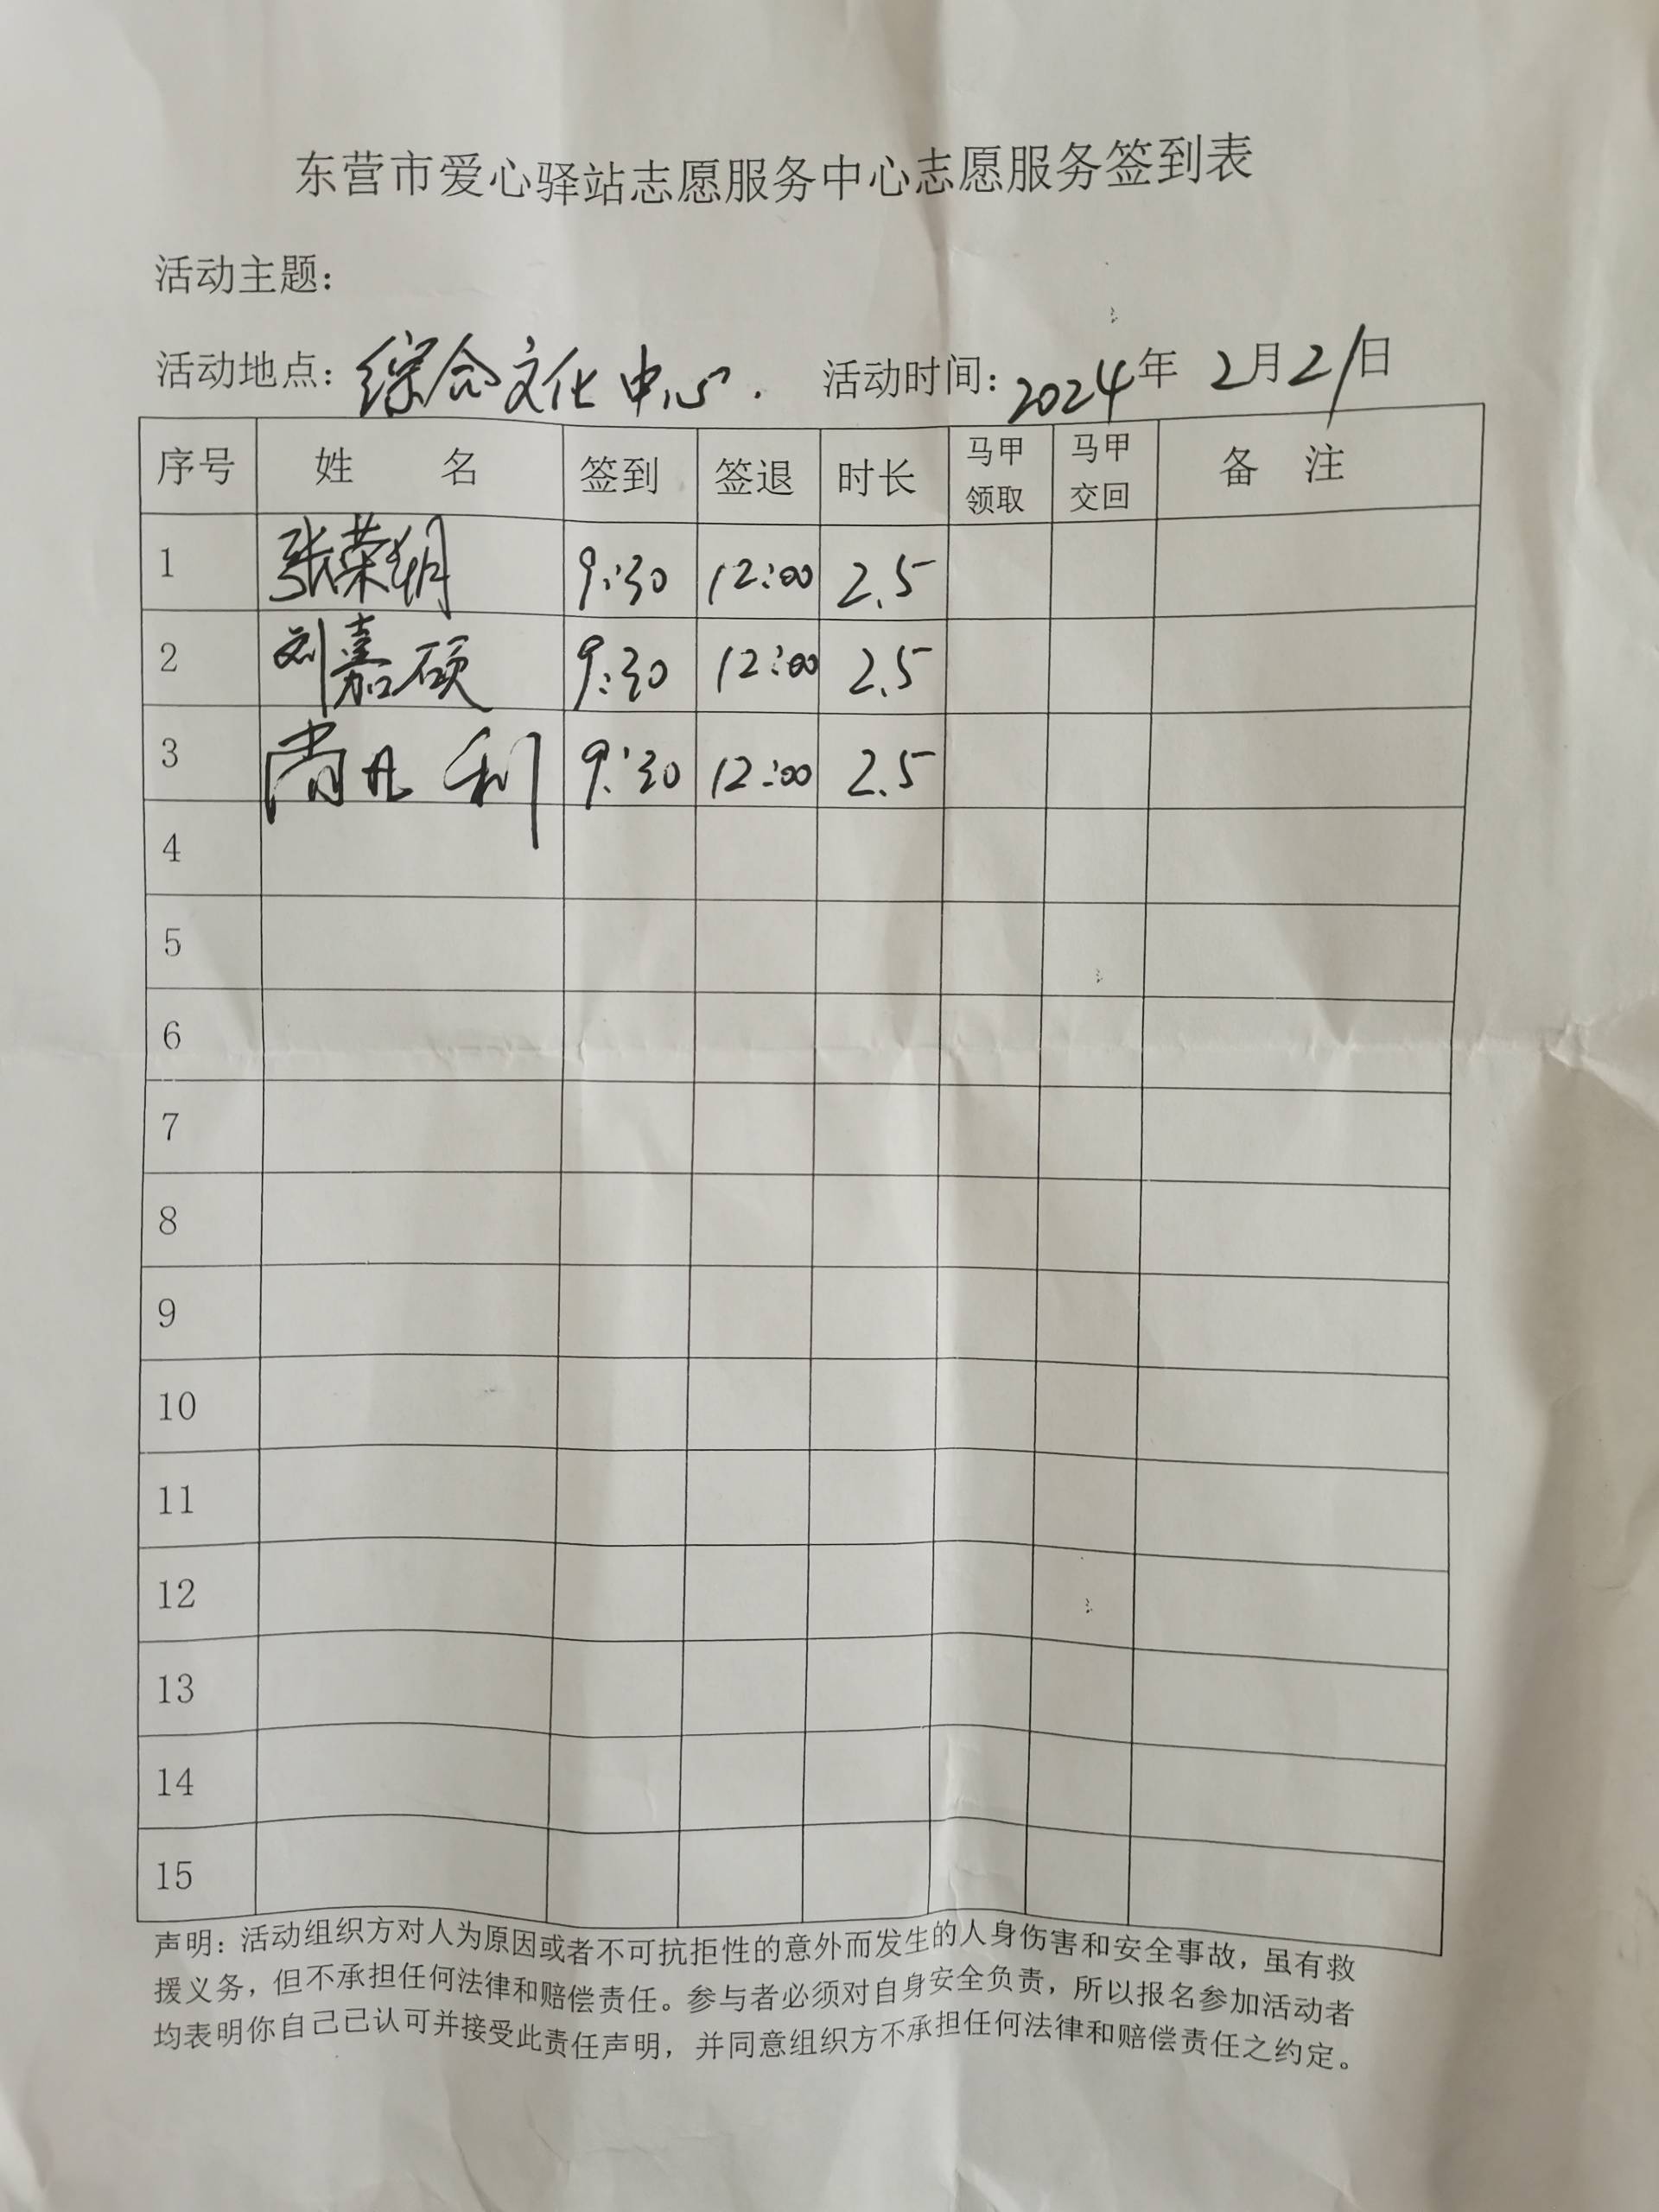 东营市爱心驿站志愿服务中心志愿服务签到表
活动主题：
活动地点：综合文化中心. 活动时间：2024年 2月21日
序号 姓 名 签到 签退 时长 马甲领取 马甲交回 备 注
1 张荣 9:30 12:00 2.5
2 刘嘉硕 9:30 12:00 2.5
3 尚凡利 9:30 12:00 2.5
4
5
6
7
8
9
10
11
12
13
14
15
声明：活动组织方对人为原因或者不可抗拒性的意外而发生的人身伤害和安全事故，虽有救
援义务，但不承担任何法律和赔偿责任。参与者必须对自身安全负责，所以报名参加活动者
均表明你自己已认可并接受此责任声明，并同意组织方不承担任何法律和赔偿责任之约定。